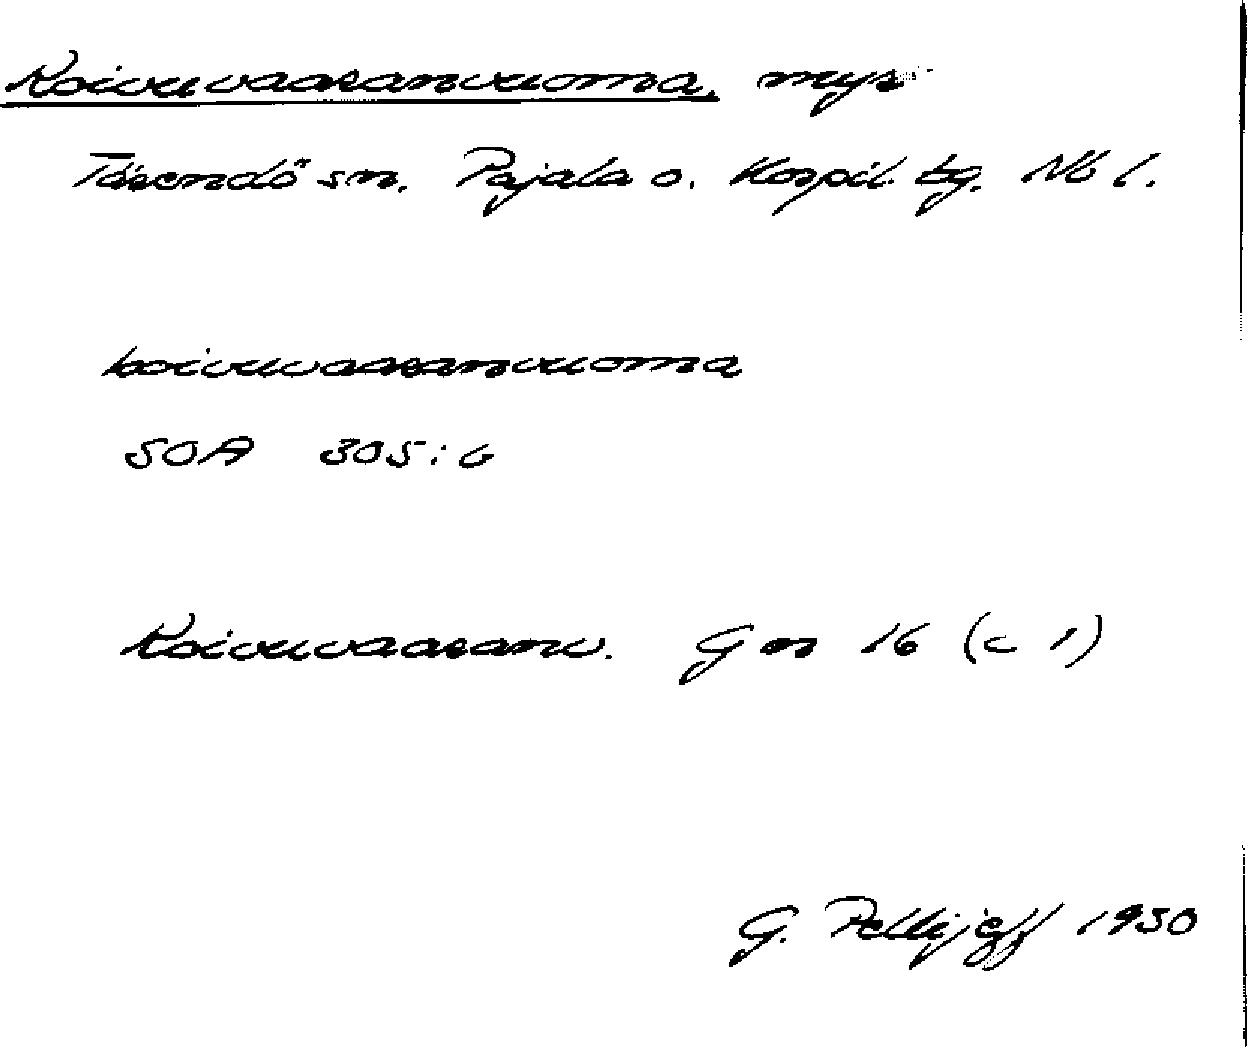 Koivuvaaranvuoma, myr
Tärendö sn. Pajala o. Korpil. tg. Nb l.
koivuvaaranvuoma
SOA 305:6
Koivuvaaranv. Gen 16 (c 1)
G. Pellijeff 1950